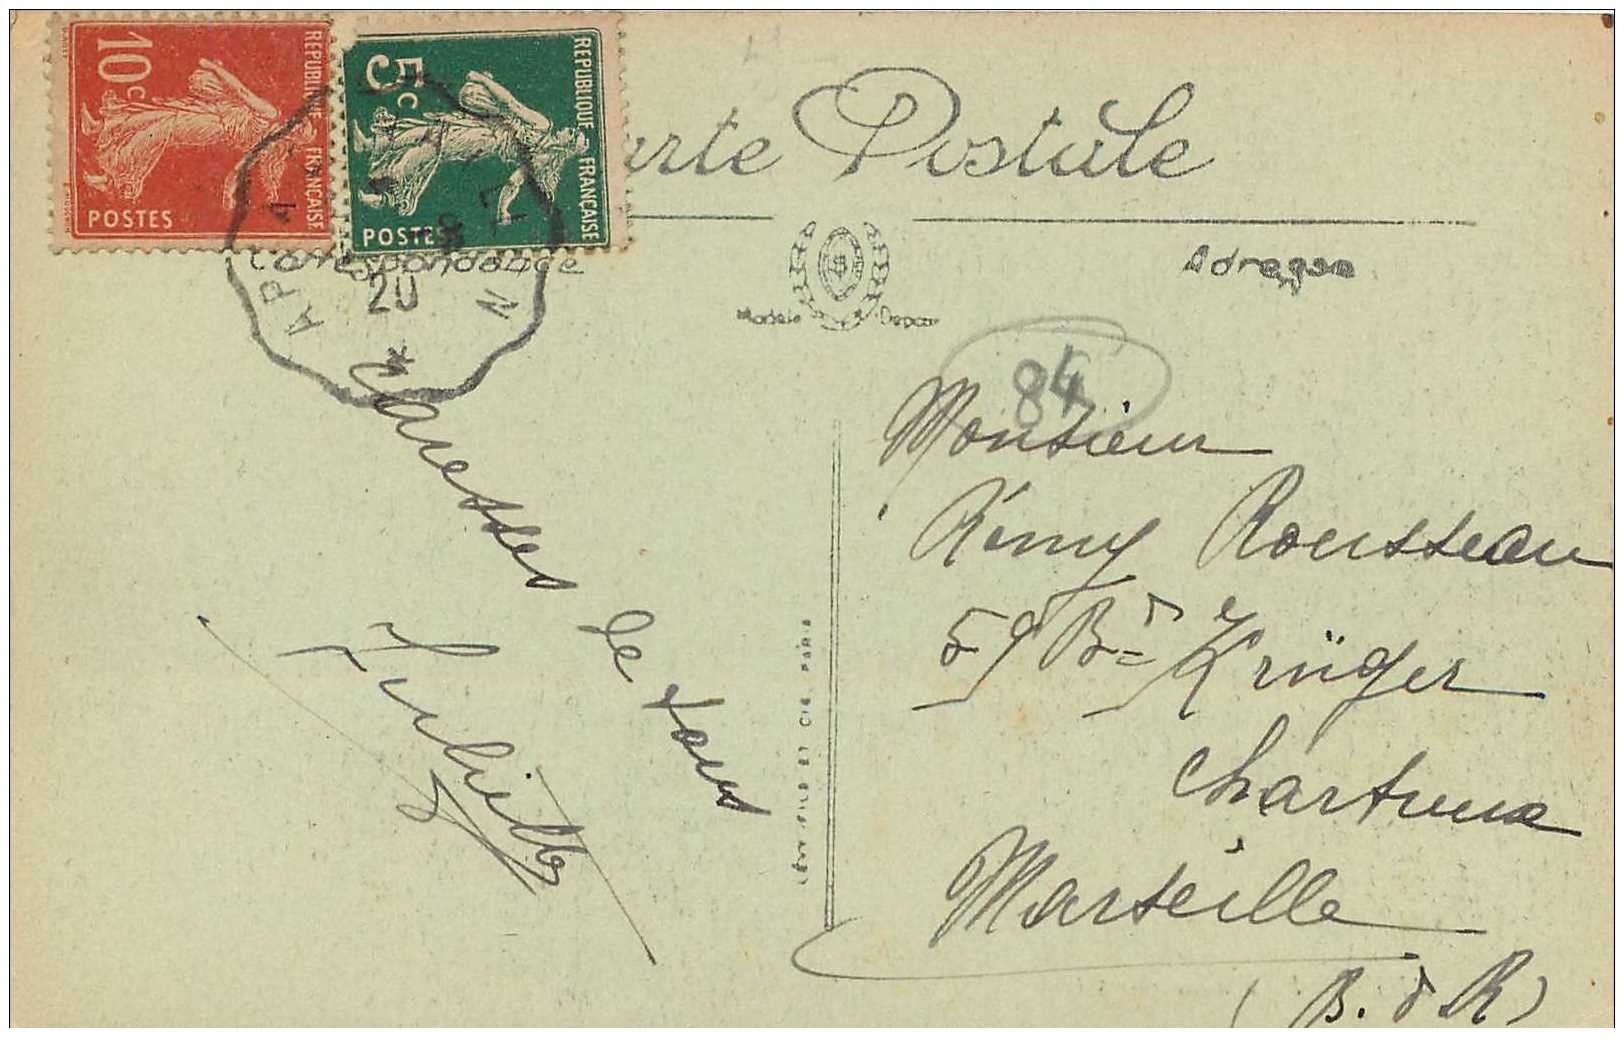 10c
REPUBLIQUE FRANÇAISE
POSTES
5c
REPUBLIQUE FRANÇAISE
POSTES
Carte Postale
Correspondance
Adresse
Modèle Déposé
20
*
84
Caresses de tous
Juliette
LÉVY FILS ET CIE PARIS
Monsieur
Rémy Rousseau
59 Bd Krüger
Chartreux
Marseille
(B. d R)